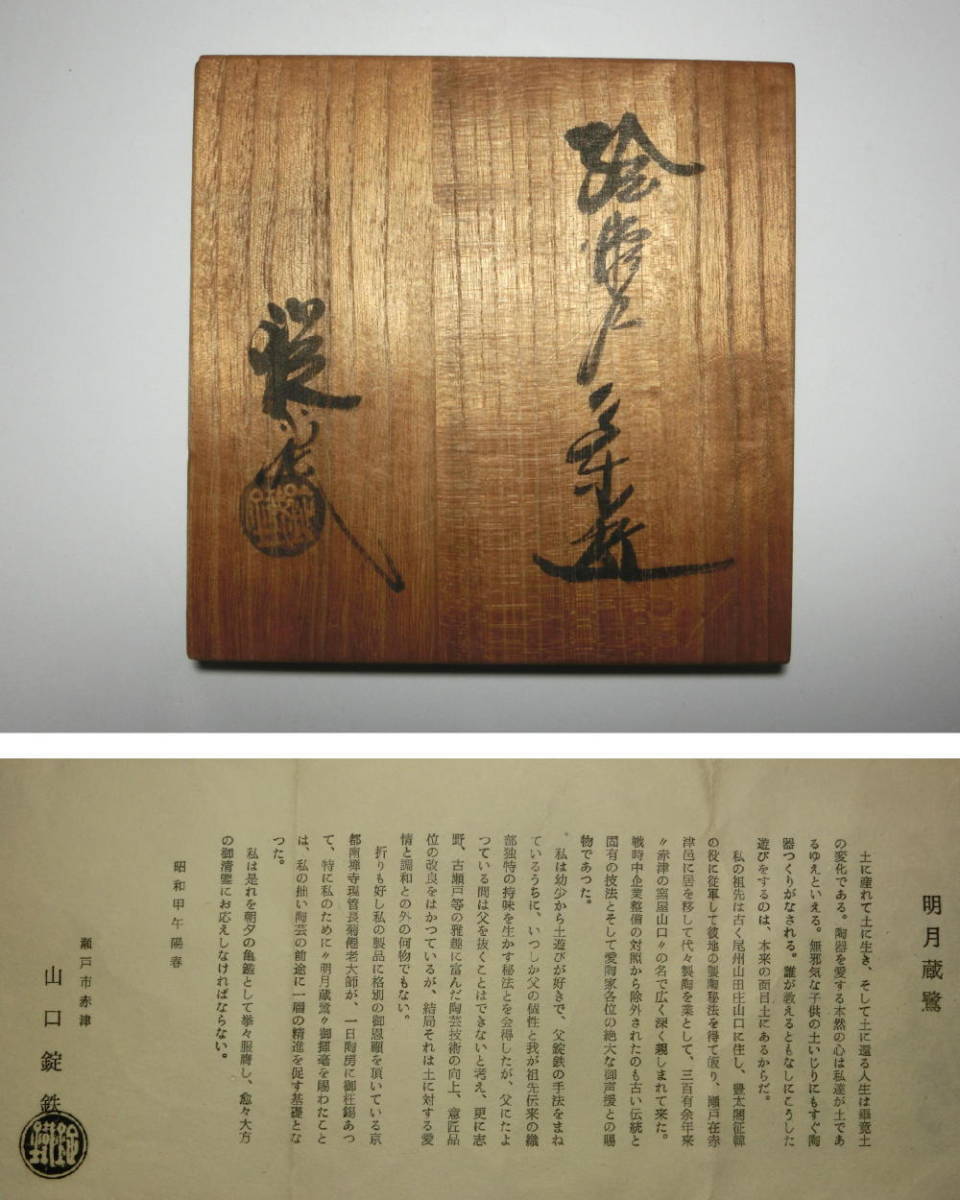 絵瀬戸
錠鉄
明月蔵鷺
土に産れて土に生き、そして土に還る人生は畢竟土
の変化である。陶器を愛する本然の心は私達が土であ
るゆえといえる。無邪気な子供の土いじりにもすぐ陶
器つくりがなされる。誰が教えるともなしにこうした
遊びをするのは、本来の面目土にあるからだ。
私の祖先は古く尾州山田庄山口に住し、豊太閤征韓
の役に従軍して彼地の製陶秘法を得て皈り、瀬戸在赤
津邑に居を移して代々製陶を業として、三百有余年来
〝赤津の窯屋山口〟の名で広く深く親しまれて来た。
戦時中企業整備の対照から除外されたのも古い伝統と
固有の技法とそして愛陶家各位の絶大な御声援との賜
物であつた。
私は幼少から土遊びが好きで、父錠鉄の手法をまね
ているうちに、いつしか父の個性と我が祖先伝来の織
部独特の持味を生かす秘法とを会得したが、父にたよ
つている間は父を抜くことはできないと考え、更に志
野、古瀬戸等の雅趣に富んだ陶芸技術の向上、意匠品
位の改良をはかつているが、結局それは土に対する愛
情と調和との外の何物でもない。
折りも好し私の製品に格別の御恩顧を頂いている京
都南禅寺現管長菊僊老大師が、一日陶房に御枉錫あつ
て、特に私のために〝明月蔵鷺〟御揮毫を賜わたこと
は、私の拙い陶芸の前途に一層の精進を促す基礎とな
つた。
私は是れを朝夕の亀鑑として拳々服膺し、愈々大方
の御清鑑にお応えしなければならない。
昭和甲午陽春
瀬戸市赤津
山口錠鉄